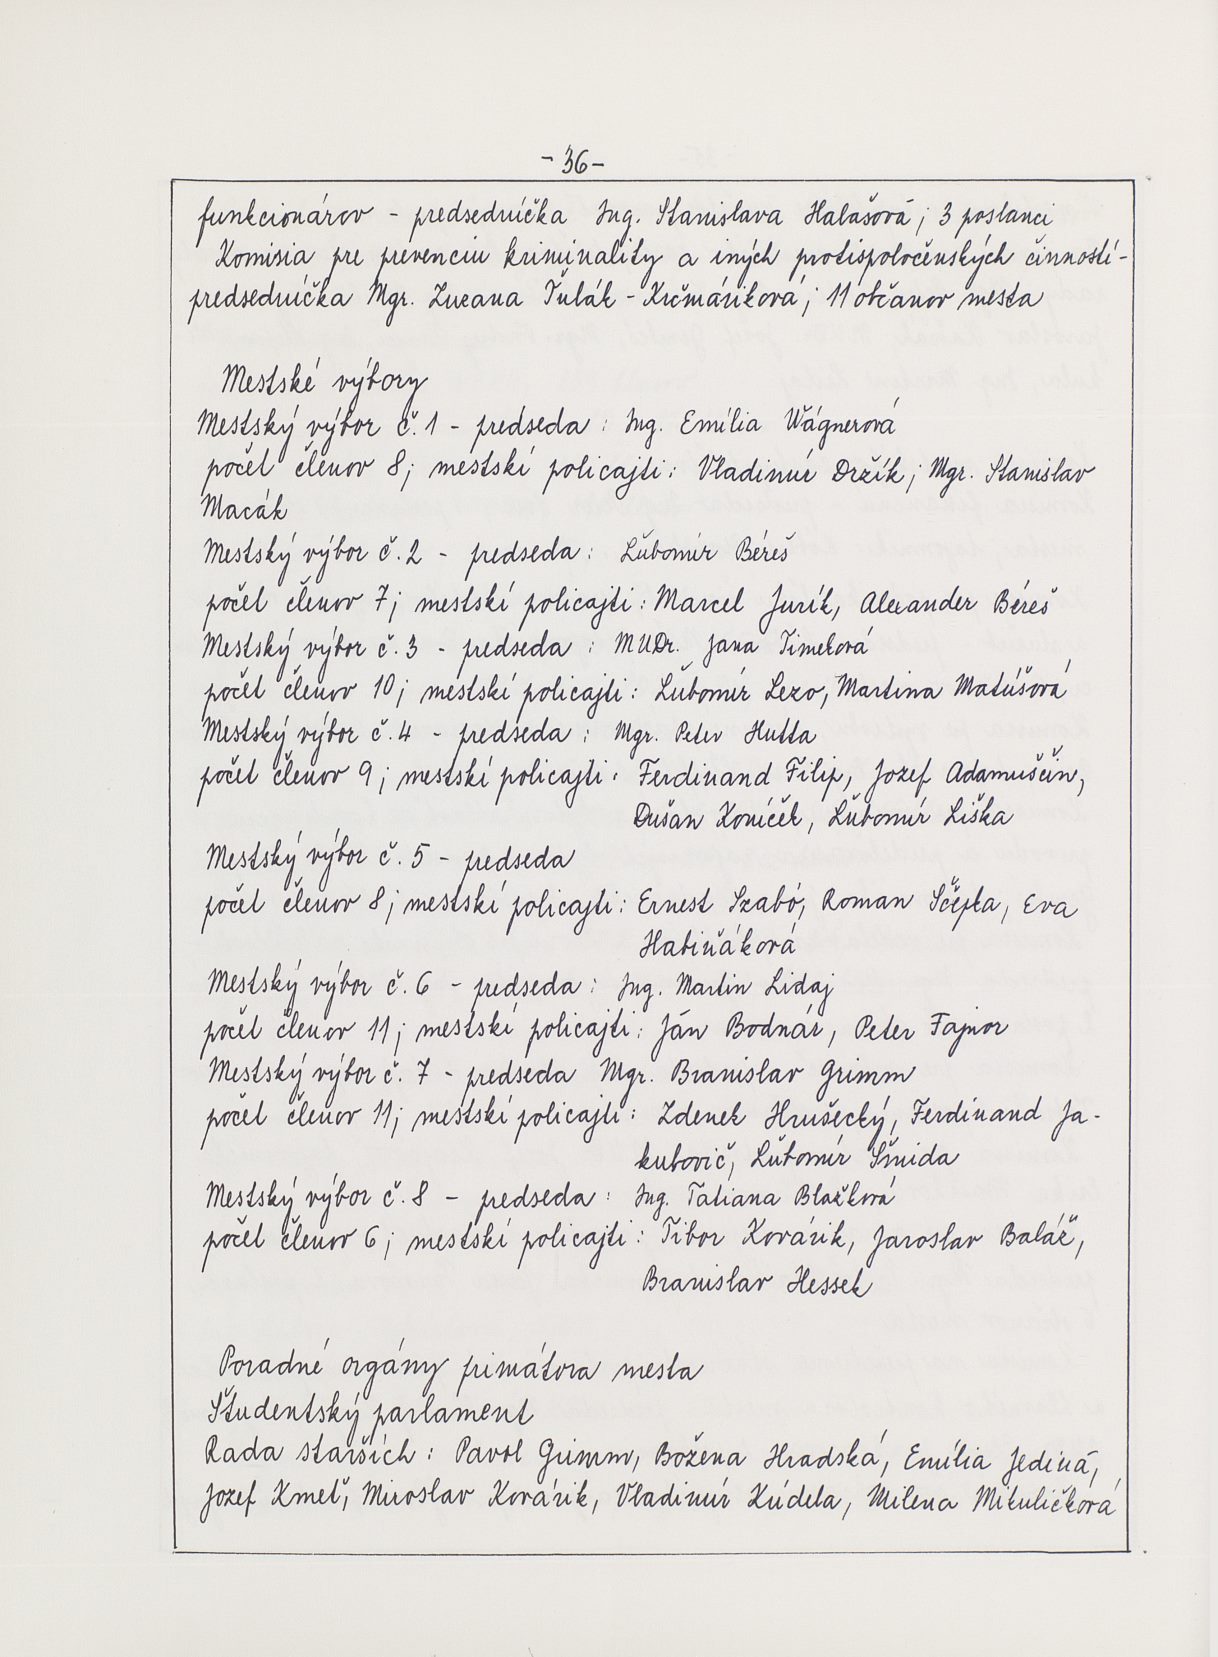 - 36 -
funkcionárov - predsedníčka Ing. Stanislava Halašová; 3 poslanci
Komisia pre prevenciu kriminality a iných protispoločenských činností -
predsedníčka Mgr. Zuzana Ťulák - Krčmáriková; 11 občanov mesta
Mestské výbory
Mestský výbor č. 1 - predseda : Ing. Emília Wágnerová
počet členov 8; mestskí policajti: Vladimír Držík; Mgr. Stanislav
Macák
Mestský výbor č. 2 - predseda : Ľubomír Béreš
počet členov 7; mestskí policajti : Marcel Jurík, Alexander Béreš
Mestský výbor č. 3 - predseda : MUDr. Jana Timeková
počet členov 10; mestskí policajti : Ľubomír Lezo, Martina Matúšová
Mestský výbor č. 4 - predseda : Mgr. Peter Hutta
počet členov 9; mestskí policajti : Ferdinand Filip, Jozef Adamuščin,
Dušan Koníček, Ľubomír Liška
Mestský výbor č. 5 - predseda
počet členov 8; mestskí policajti : Ernest Szabó, Roman Ščepka, Eva
Habiňáková
Mestský výbor č. 6 - predseda : Ing. Martin Lidaj
počet členov 11; mestskí policajti : Ján Bodnár, Peter Fajnor
Mestský výbor č. 7 - predseda Mgr. Branislav Grimm
počet členov 11; mestskí policajti : Zdenek Hrušecký, Ferdinand Ja-
kubovič, Ľubomír Šmida
Mestský výbor č. 8 - predseda : Ing. Tatiana Blažková
počet členov 6; mestskí policajti : Tibor Kovárik, Jaroslav Baláž,
Branislav Hessek
Poradné orgány primátora mesta
Študentský parlament
Rada starších : Pavol Grimm, Božena Hradská, Emília Jediná,
Jozef Kmeť, Miroslav Kovárik, Vladimír Kúdela, Milena Mikuličková